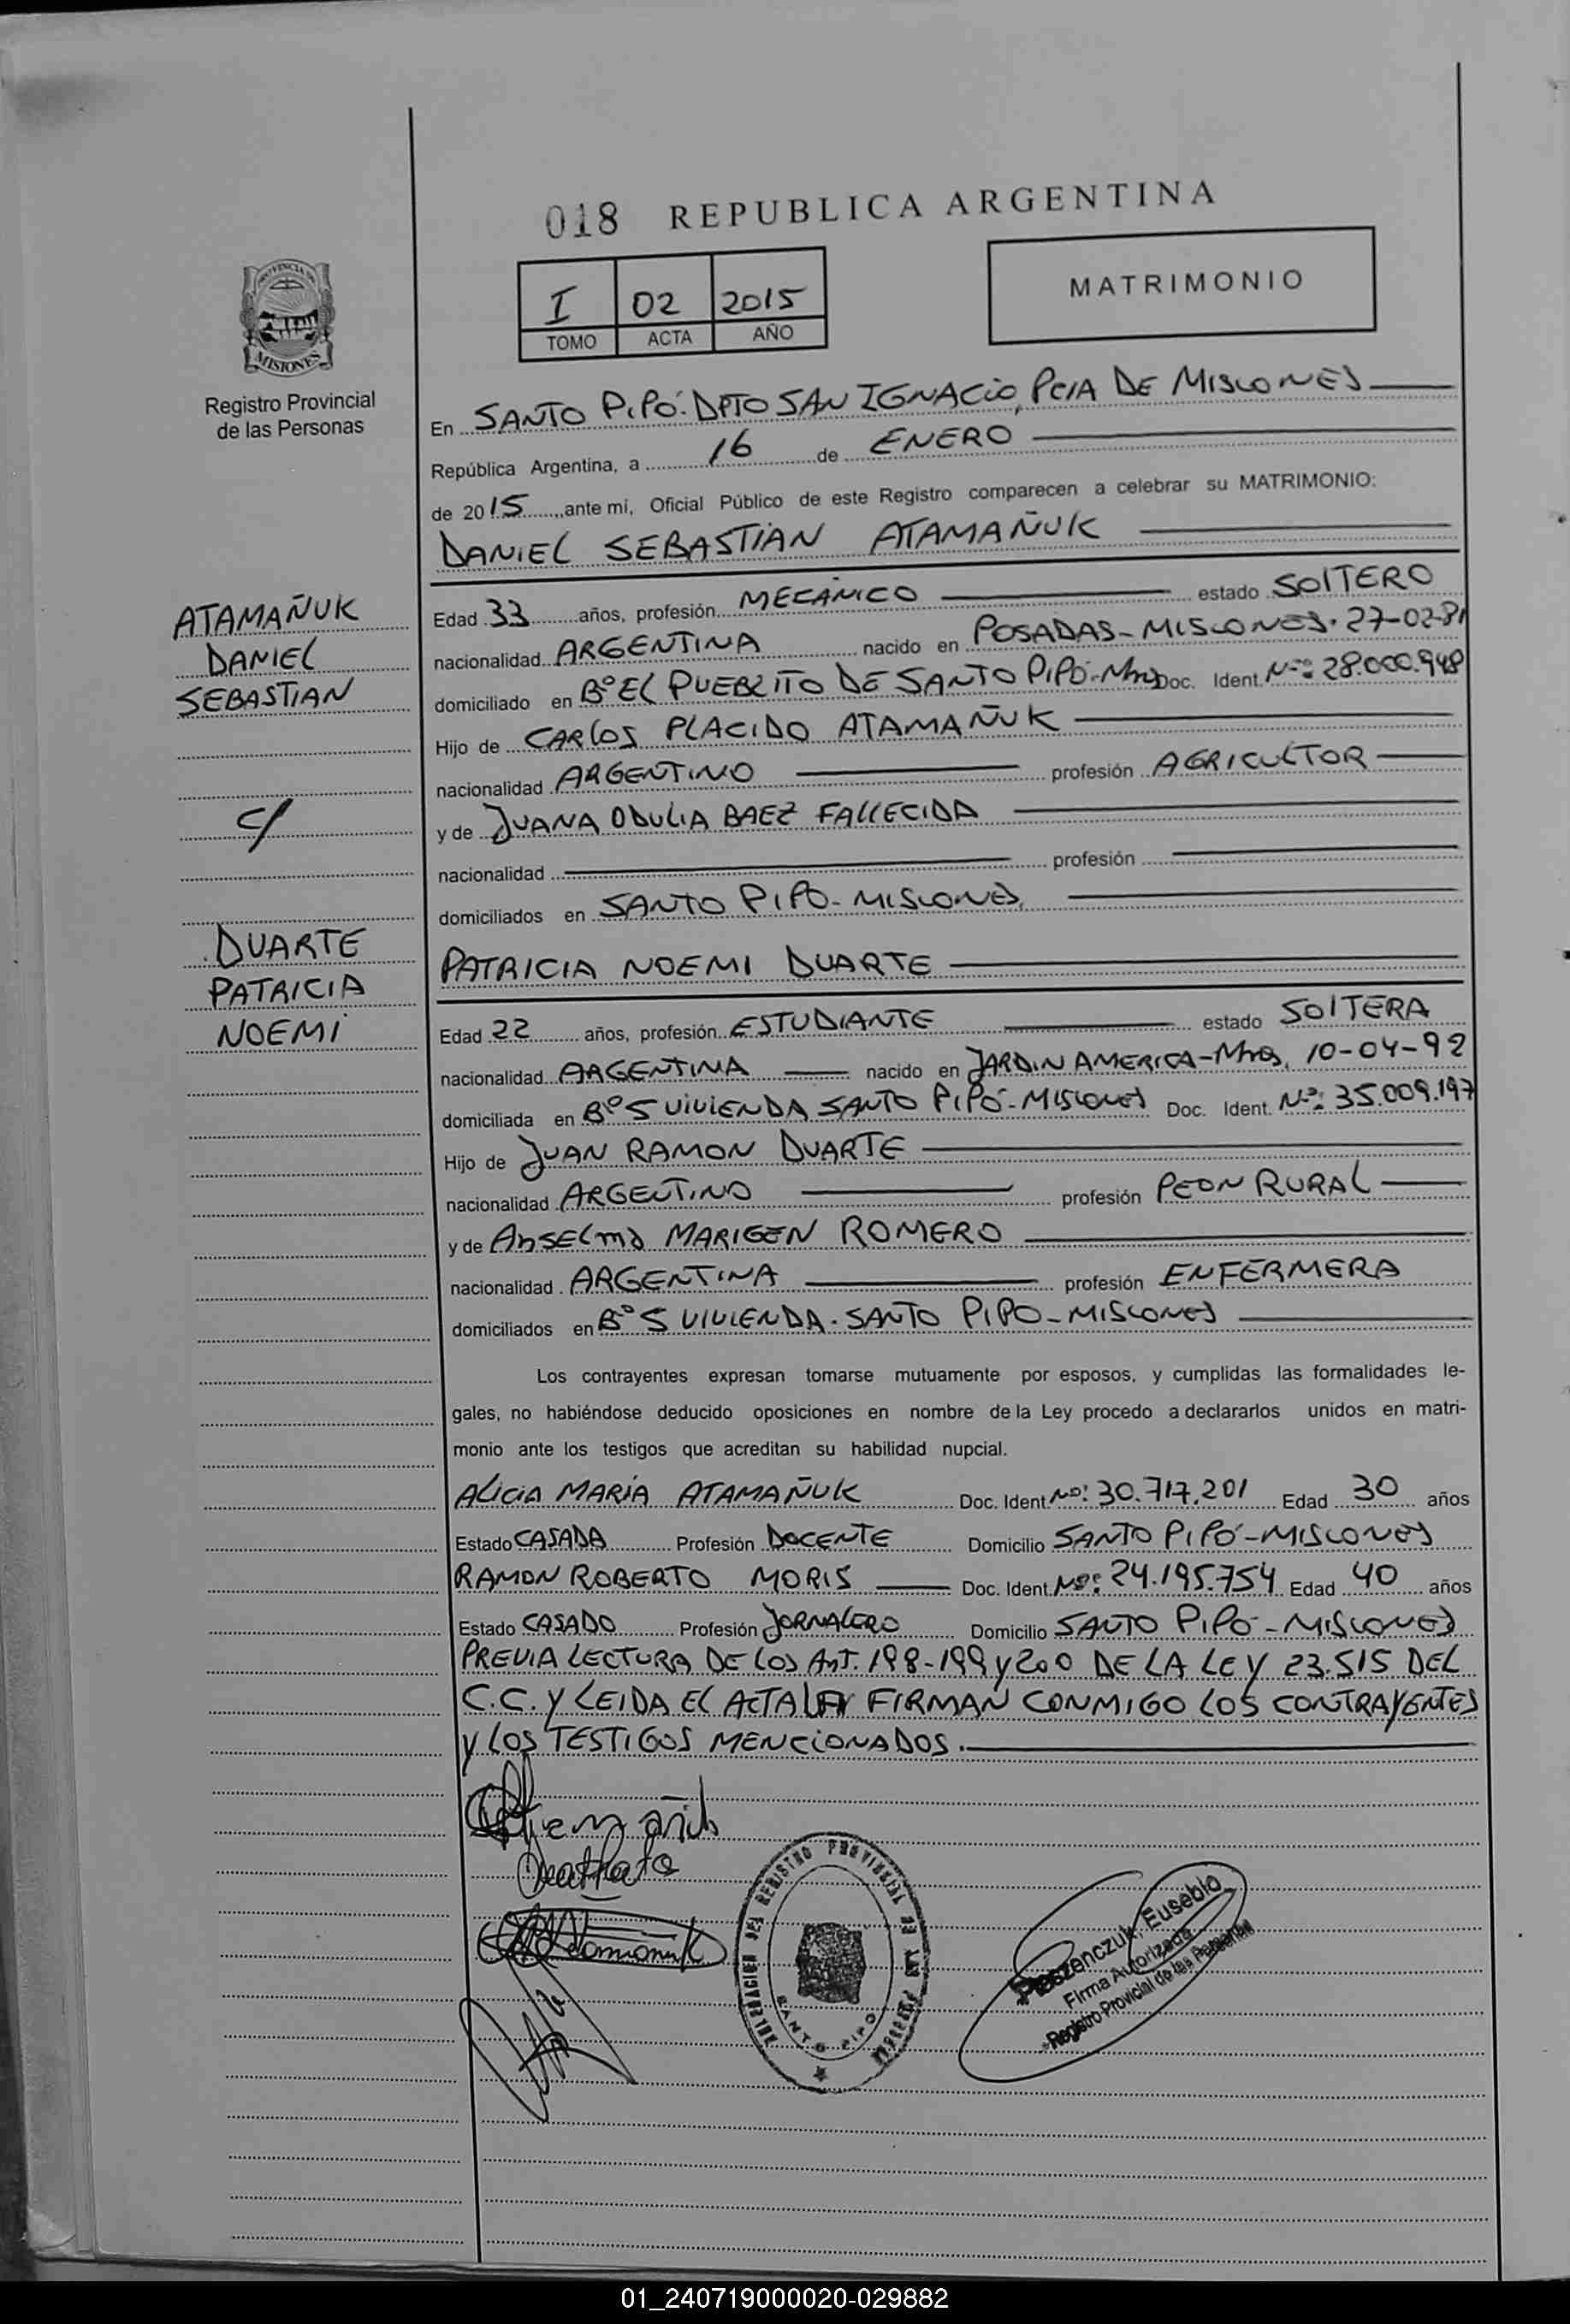 018 REPUBLICA ARGENTINA
I 02 2015
TOMO ACTA AÑO
MATRIMONIO
PROVINCIA DE
MISIONES
Registro Provincial
de las Personas
En SANTO PIPÓ. DPTO SAN IGNACIO, PCIA DE MISIONES
República Argentina, a 16 de ENERO
de 2015, ante mi, Oficial Público de este Registro comparecen a celebrar su MATRIMONIO:
DANIEL SEBASTIAN ATAMAÑUK
ATAMAÑUK
DANIEL
SEBASTIAN
C/
DUARTE
PATRICIA
NOEMI
Edad 33 años, profesión MECANICO estado SOLTERO
nacionalidad ARGENTINA nacido en POSADAS-MISIONES. 27-02-81
domiciliado en Bº EL PUEBLITO DE SANTO PIPÓ-Mnes Doc. Ident. Nº: 28.000.948
Hijo de CARLOS PLACIDO ATAMAÑUK
nacionalidad ARGENTINO profesión AGRICULTOR
y de JUANA ODULIA BAEZ FALLECIDA
nacionalidad profesión
domiciliados en SANTO PIPO-MISIONES,
PATRICIA NOEMI DUARTE
Edad 22 años, profesión ESTUDIANTE estado SOLTERA
nacionalidad ARGENTINA nacido en JARDIN AMERICA-Mnes, 10-04-92
domiciliada en Bº 5 VIVIENDA SANTO PIPÓ-MISIONES Doc. Ident. Nº: 35.009.197
Hijo de JUAN RAMON DUARTE
nacionalidad ARGENTINO profesión PEON RURAL
y de AnSELma MARIGEN ROMERO
nacionalidad ARGENTINA profesión ENFERMERA
domiciliados en Bº 5 VIVIENDA. SANTO PIPO-MISIONES
Los contrayentes expresan tomarse mutuamente por esposos, y cumplidas las formalidades le-
gales, no habiéndose deducido oposiciones en nombre de la Ley procedo a declararlos unidos en matri-
monio ante los testigos que acreditan su habilidad nupcial.
ALICIA MARIA ATAMAÑUK Doc. Ident Nº: 30.717.201 Edad 30 años
Estado CASADA Profesión DOCENTE Domicilio SANTO PIPÓ-MISIONES
RAMON ROBERTO MORIS Doc. Ident. Nº: 24.195.754 Edad 40 años
Estado CASADO Profesión JORNALERO Domicilio SANTO PIPÓ-MISIONES
PREVIA LECTURA DE LOS Art. 198-199 y 200 DE LA LEY 23.515 DEL
C.C. Y LEIDA EL ACTA FIRMAN CONMIGO LOS CONTRAYENTES
Y LOS TESTIGOS MENCIONADOS.
DELEGACION DEL REGISTRO PROVINCIAL DE LAS PERSONAS
SANTO PIPO
Preszenczuk, Eusebio
Firma Autorizada
Registro Provicial de las Personas
01_240719000020-029882